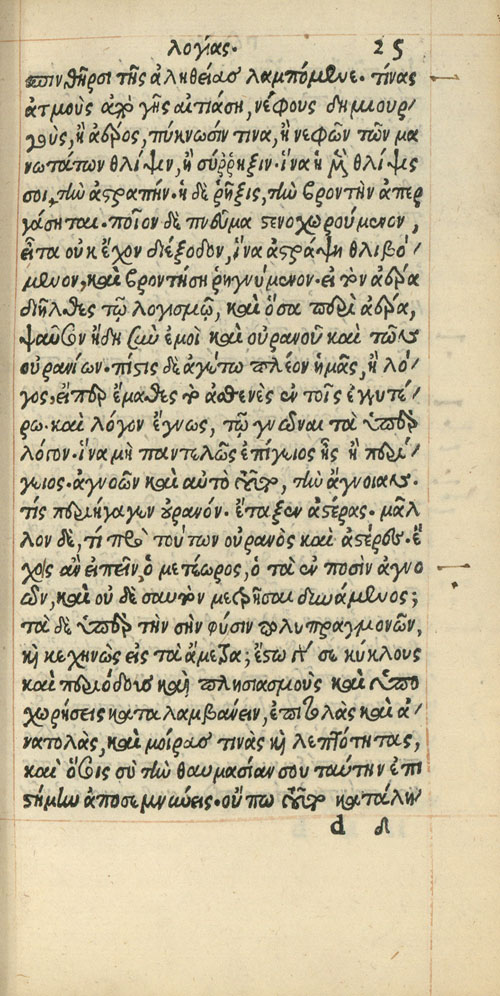 λογίας. 25
σπινθῆρσι τῆς ἀληθείας λαμπόμενε. τίνας
ἀτμοὺς ἀπὸ γῆς αἰτιάσῃ, νέφους δημιουρ-
γοὺς, ἢ ἀέρος, πύκνωσίν τινα, ἢ νεφῶν τῶν μα
νωτάτων θλίψιν, ἢ σύῤῥηξιν. ἵνα ἡ μὲν θλίψις
σοι, τὴν ἀστραπήν. ἡ δὲ ῥῆξις, τὴν βροντὴν ἀπερ
γάσηται. ποῖον δὲ πνεῦμα στενοχωρούμενον,
εἶτα οὐκ ἔχον διέξοδον, ἵνα ἀστράψῃ θλιβό-
μενον, καὶ βροντήσῃ ῥηγνύμενον. εἰ τὸν ἀέρα
διῆλθες τῷ λογισμῷ, καὶ ὅσα περὶ ἀέρα,
ψαῦσον ἤδη σὺν ἐμοὶ καὶ οὐρανοῦ καὶ τῶν
οὐρανίων. πίστις δὲ ἀγέτω πλέον ἡμᾶς, ἢ λό-
γος, εἴπερ ἔμαθες τὸ ἀσθενὲς ἐν τοῖς ἐγγυτέ-
ρω. καὶ λόγον ἔγνως, τῷ γνῶναι τὰ ὑπὲρ
λόγον. ἵνα μὴ παντελῶς ἐπίγειος ᾖς ἢ περί-
γειος. ἀγνοῶν καὶ αὐτὸ τοῦτο, τὴν ἄγνοιαν.
τίς περιήγαγεν οὐρανόν. ἔταξεν ἀστέρας. μᾶλ
λον δὲ, τί πρὸ τούτων οὐρανὸς καὶ ἀστέρες. ἔ
χοις ἂν εἰπεῖν, ὁ μετέωρος, ὁ τὰ ἐν ποσὶν ἀγνο
ῶν, καὶ οὐ δὲ σαυτὸν μετρῆσαι δυνάμενος;
τὰ δὲ ὑπὲρ τὴν σὴν φύσιν πολυπραγμονῶν,
κὴ κεχηνὼς εἰς τὰ ἄμετρα; ἔστω γάρ σε κύκλους
καὶ περιόδους καὶ πλησιασμοὺς καὶ ὑπο
χωρήσεις καταλαμβάνειν, ἐπιτολὰς καὶ ἀ-
νατολὰς, καὶ μοίρας τινὰς κὴ λεπτότητας,
καὶ ὅσοις σὺ τὴν θαυμασίαν σου ταύτην ἐπι
στήμην ἀποσεμνύεις. οὔπω τοῦτο κατάλη-
d δ